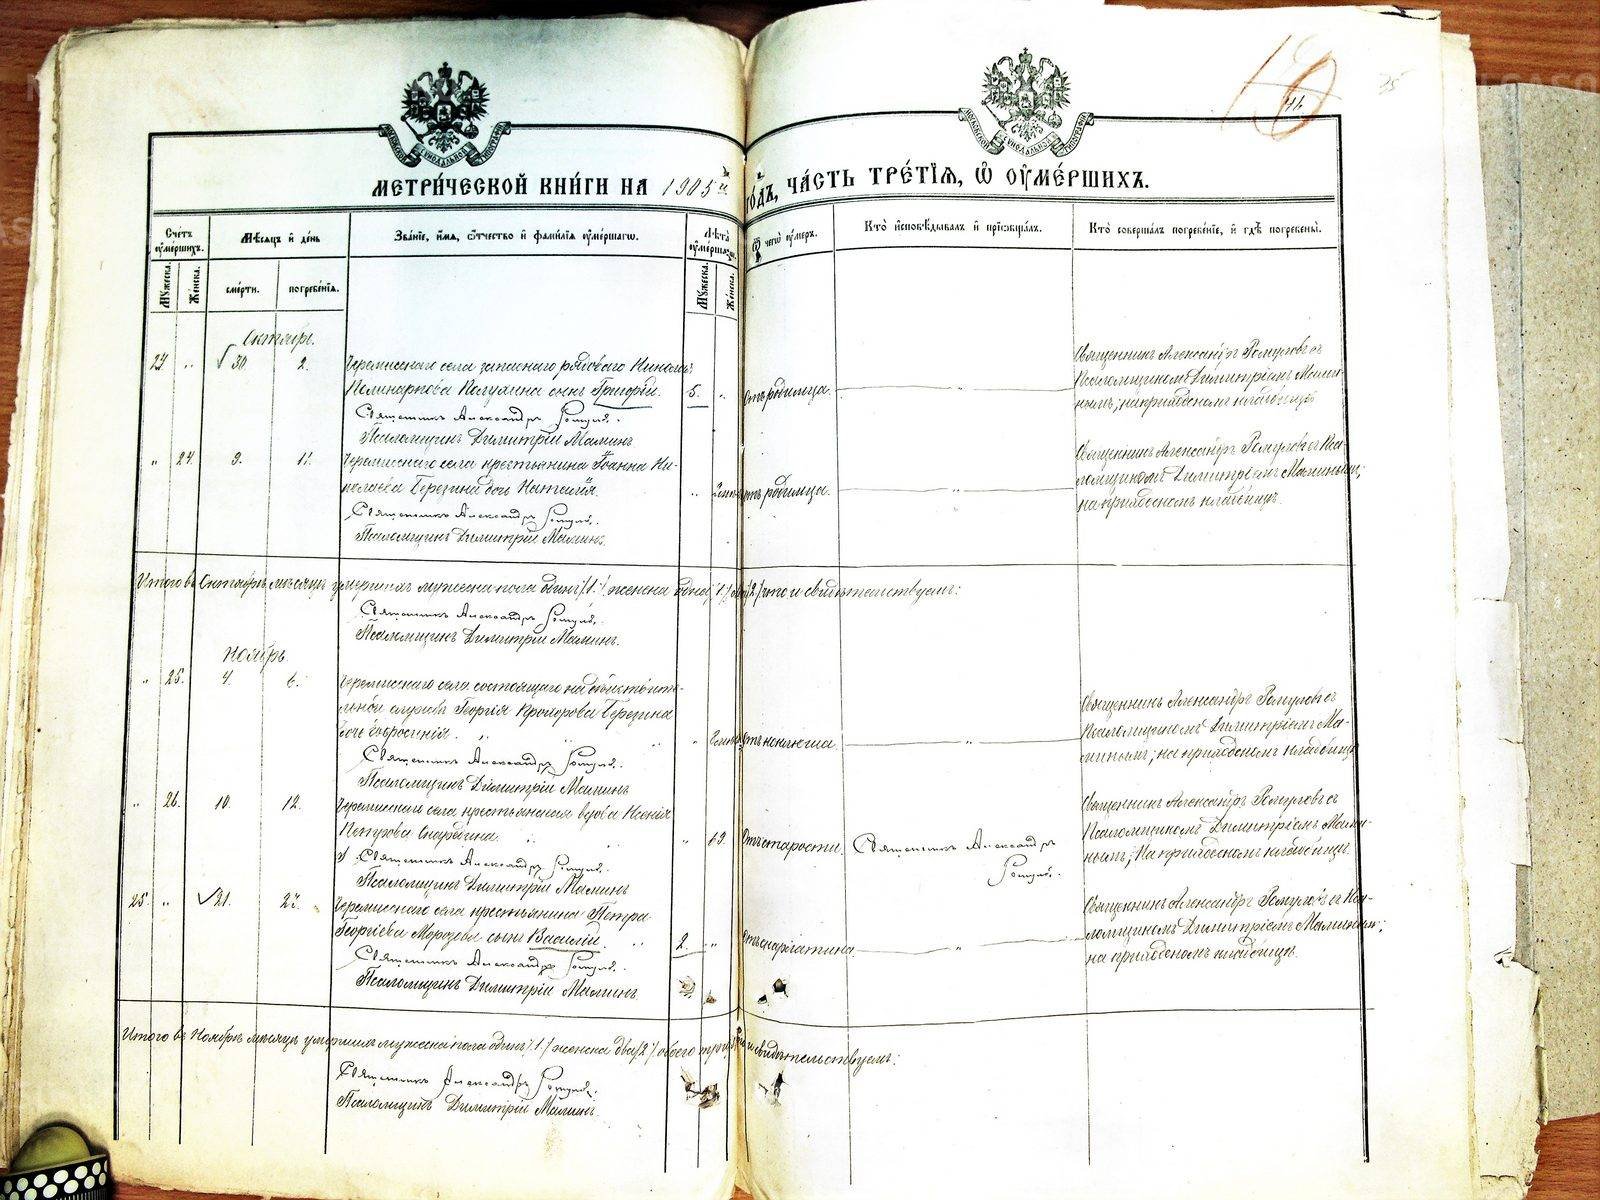 46
МЕТРИ́ЧЕСКОЙ КНИ́ГИ НА 1905й ГО́ДЪ, ЧА́СТЬ ТРЕ́ТІѦ, Ѿ ОУ҆МЕ́РШИХЪ.
Сче́тъ оу҆ме́ршихъ.
Мѣ́сѧцъ и҆ де́нь
Зва́нїе, и҆́мѧ, ѻ҆́тчество и҆ фами́лїѧ оу҆ме́ршагѡ.
Лѣ́та оу҆ме́ршагѡ.
Ѿ чегѡ̀ оу҆́меръ.
Кто̀ и҆сповѣ́дывалъ и҆ прїѡбща́лъ.
Кто̀ соверша́лъ погребе́нїе, и҆ гдѣ̀ погребены̀.
Мꙋ́жеска.
Же́нска.
сме́рти.
погребе́нїѧ.
Мꙋ́жеска.
Же́нска.
Октябрь.
24 „ 30 2. Черемисскаго села запаснаго рядоваго Николая
сынъ Григорій. 5. „
Священникъ Александръ Ромулов
Псаломщикъ Димитрій Маминъ
Священникъ Александръ Ромуловъ съ
Псаломщикомъ Димитріемъ Мами-
нымъ; на приходскомъ кладбищѣ
„ 24. 9. 11. Черемисскаго села крестьянина Іоанна Ни-
колаева Березина дочь Наталія. „ отъ родимца. „
Священникъ Александръ Ромулов
Псаломщикъ Димитрій Маминъ.
Священникъ Александръ Ромуловъ съ Пса-
ломщикомъ Димитріемъ Маминымъ;
на приходскомъ кладбищѣ.
Итого въ Октябрѣ мѣсяцѣ умершихъ мужеска пола одинъ /1/ женска одна /1/ /2/ что и свидѣтельствуемъ:
Священникъ Александръ Ромулов
Псаломщикъ Димитрій Маминъ.
Ноябрь.
„ 25. 4. 6. Черемисскаго села состоящаго на дѣйствитель-
льной службѣ Георгія Прохорова Березина
дочь Евфросинія. „
Священникъ Александръ Ромулов
Псаломщикъ Димитрій Маминъ
Священникъ Александръ Ромуловъ съ
Псаломщикомъ Димитріемъ Ма-
минымъ; на приходскомъ кладбищѣ
„ 26. 10. 12. Черемисскаго села крестьянская вдова Ксенія
Петрова „ Отъ старости. Священникъ Александръ
Ромулов
Священникъ Александръ Ромулов
Псаломщикъ Димитрій Маминъ
Священникъ Александръ Ромуловъ съ
Псаломщикомъ Димитріемъ Мами-
нымъ; на приходскомъ кладбищѣ.
25. „ 21. 23. Черемисскаго села крестьянина Петра
Георгіева Морозова сынъ Василій. 2. „
Священникъ Александръ Ромулов
Псаломщикъ Димитрій Маминъ
Священникъ Александръ Ромуловъ съ Пса-
ломщикомъ Димитріемъ Маминымъ;
на приходскомъ кладбищѣ.
Итого въ Ноябрѣ мѣсяцѣ умершихъ мужеска пола одинъ /1/ женска два /2/ обоего свидѣтельствуемъ:
Священникъ Александръ Ромулов
Псаломщикъ Димитрій Маминъ.